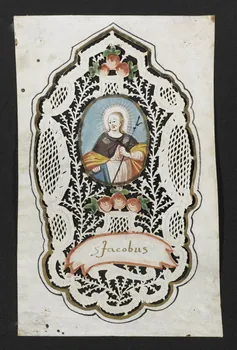 S Jacobus